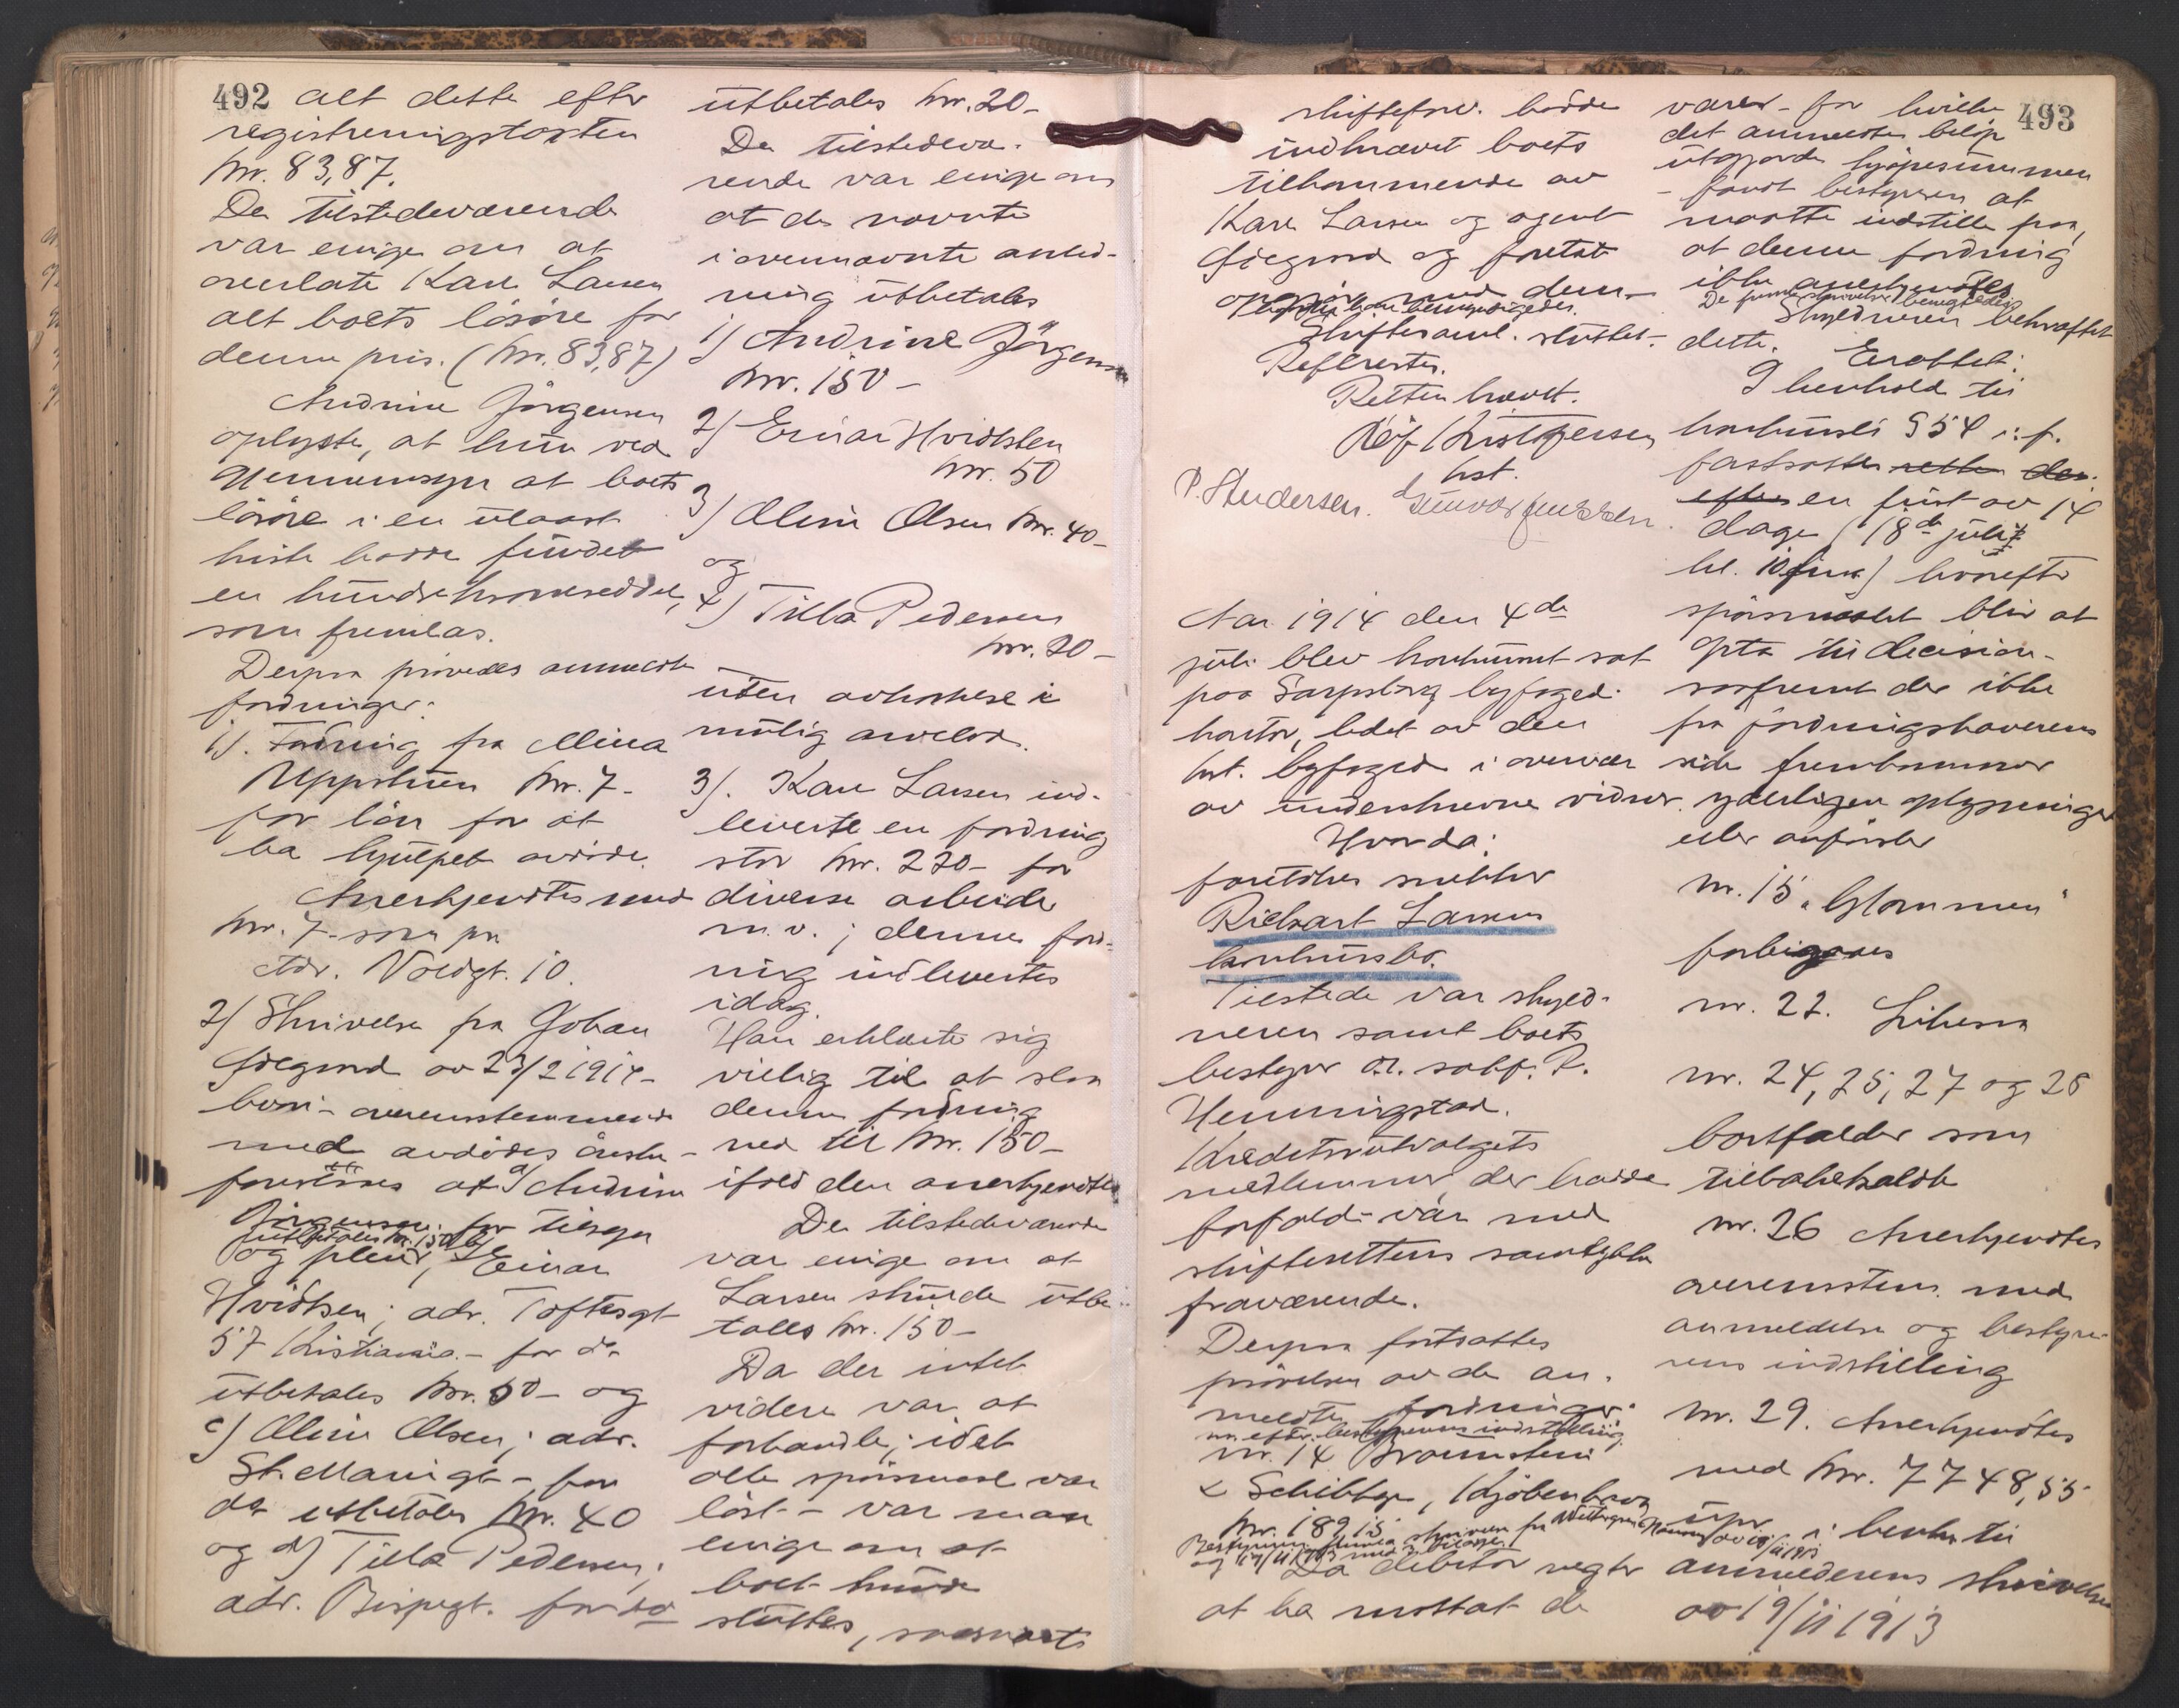 492
alt dette efter
registreringstaxten
kr. 83,87.
De tilstedeværende
var enige om at
overlate Kare Larsen
alt boets lösöre for
denne pris. (kr. 83,87)
Andrine Jörgensen
oplyste, at hun ved
gjennemsyn at boets
lösöre i en ulaast
kiste hadde fundet
en hundrekroneseddel,
som fremlas.
Derpaa prövedes anmeldte
fordringer:
1). Fordring fra Mina
Uppstrøm kr. 7-
for lön for at
ha hjulpet avdöde.
Anerkjendtes med
kr. 7- som pri
Adr. Voldgt. 10.
2) Skrivelse fra Johan
Gregmd av 23/2 1914-
hvori- overensstemmende
med avdödes önske-
foreslaaes at a) Andrine
Jörgensen for tilsyn
utbetales kr. 150 b)
og pleie, Einar
Hvidsten; adr. Toftesgt
57 Kristiania - for do
utbetales kr. 50- og
c) Oline Olsen; adr.
St. Mariegt- for
do utbetales kr. 40
og d) Tilla Pedersen;
adr. Bispegt. for do
utbetales kr. 20-
De tilstedevæ-
rende var enige om
at de nævnte
i ovennævnte anled-
ning utbetales
1) Andrine Jörgensen
kr. 150-
2) Einar Hvidsten
kr. 50
3) Oline Olsen kr. 40-
og
4) Tilla Pedersen
kr. 20-
uten avkortelse i
mulig arvelod.
3). Kare Larsen ind-
leverte en fordring
stor kr. 220- for
diverse arbeide
m.v.; denne ford-
ring indlevertes
idag.
Han erklærte sig
villig til at slaa
denne fordring
ned til kr. 150-
ifald den anerkjendtes
De tilstedeværende
var enige om at
Larsen skulde utbe-
tales kr. 150-
Da der intet
videre var at
forhandle; idet
alle spörsmaal var
löst- var man
enige om at
boet kunde
sluttes, saasnart
skifteforv. hadde
indkrævet boets
tilkommende av
Kare Larsen og agent
Gregmd og foretat
opgjör med dem-
hvortil han bemyndigedes.
Skiftesaml. sluttet.
Reflæstes.
Retten hævet.
Rolf Kristofersen
kst.
P. Andersen. Gunvor Fredriksen.
Aar 1914 den 4de
juli blev konkursret sat
paa Sarpsborg byfoged-
kontor, ledet av den
kst. byfoged i overvær
av underskrevne vidner.
Hvorda:
foretokes snekker
Rickart Larsens
konkursbo.
Tilstede var skyld-
neren samt boets
bestyrer o.r. sakf. R.
Henningstad.
Kreditorutvalgets
medlemmer, der hadde
forfald- var med
skifterettens samtykke
fraværende.
Derpaa fortsattes
prövelsen av de an-
meldte fordringer-
efter bestyrerens indstilling.
nr. 14 Braunstein
& Schibbye, Kjöbenhavn
kr. 189 15
Bestyreren fremla skrivelse fra
og 17/11 1913 med 3 bilage.
Da debitor negter
at ha mottat de
493
varer- for hvilke
det anmeldte belöp
utgjorde kjöpesummen
- fandt bestyreren at
maatte indstille paa,
at denne fordring
ikke anerkjendtes
De fremla skrivelser
Skyldneren bekræftet
dette. Erattet:
I henhold til
konkursl § 54 i.f.
fastsattes retten der-
efter en frist av 14
dage (18de juli
kl. 10 fm) hvorefter
spörsmaalet blir at
opta til decision-
saafremt der ikke
fra fordringshaverens
side fremkommer
yderligere oplysninger
eller anförsler
nr. 15 "Glommen"
forbigaaes
nr. 22.
nr. 24, 25, 27 og 28
bortfalder som
tilbakekaldt
nr. 26 Anerkjendtes
overensstem. med
anmeldelse og bestyre-
rens indstilling
nr. 29. Anerkjendtes
med kr. 7748,55
upr i henhn til
anmelderens skrivelse
av 19/11 1913